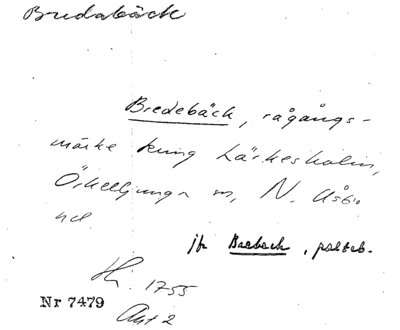 Bredabäck
Bredebäck, rågångs-
märke kring Lärkesholm,
Örkelljunga sn, N. Åsbo
hd
jfr Baebeck,
Hi. 1755
Akt 2
Nr 7479